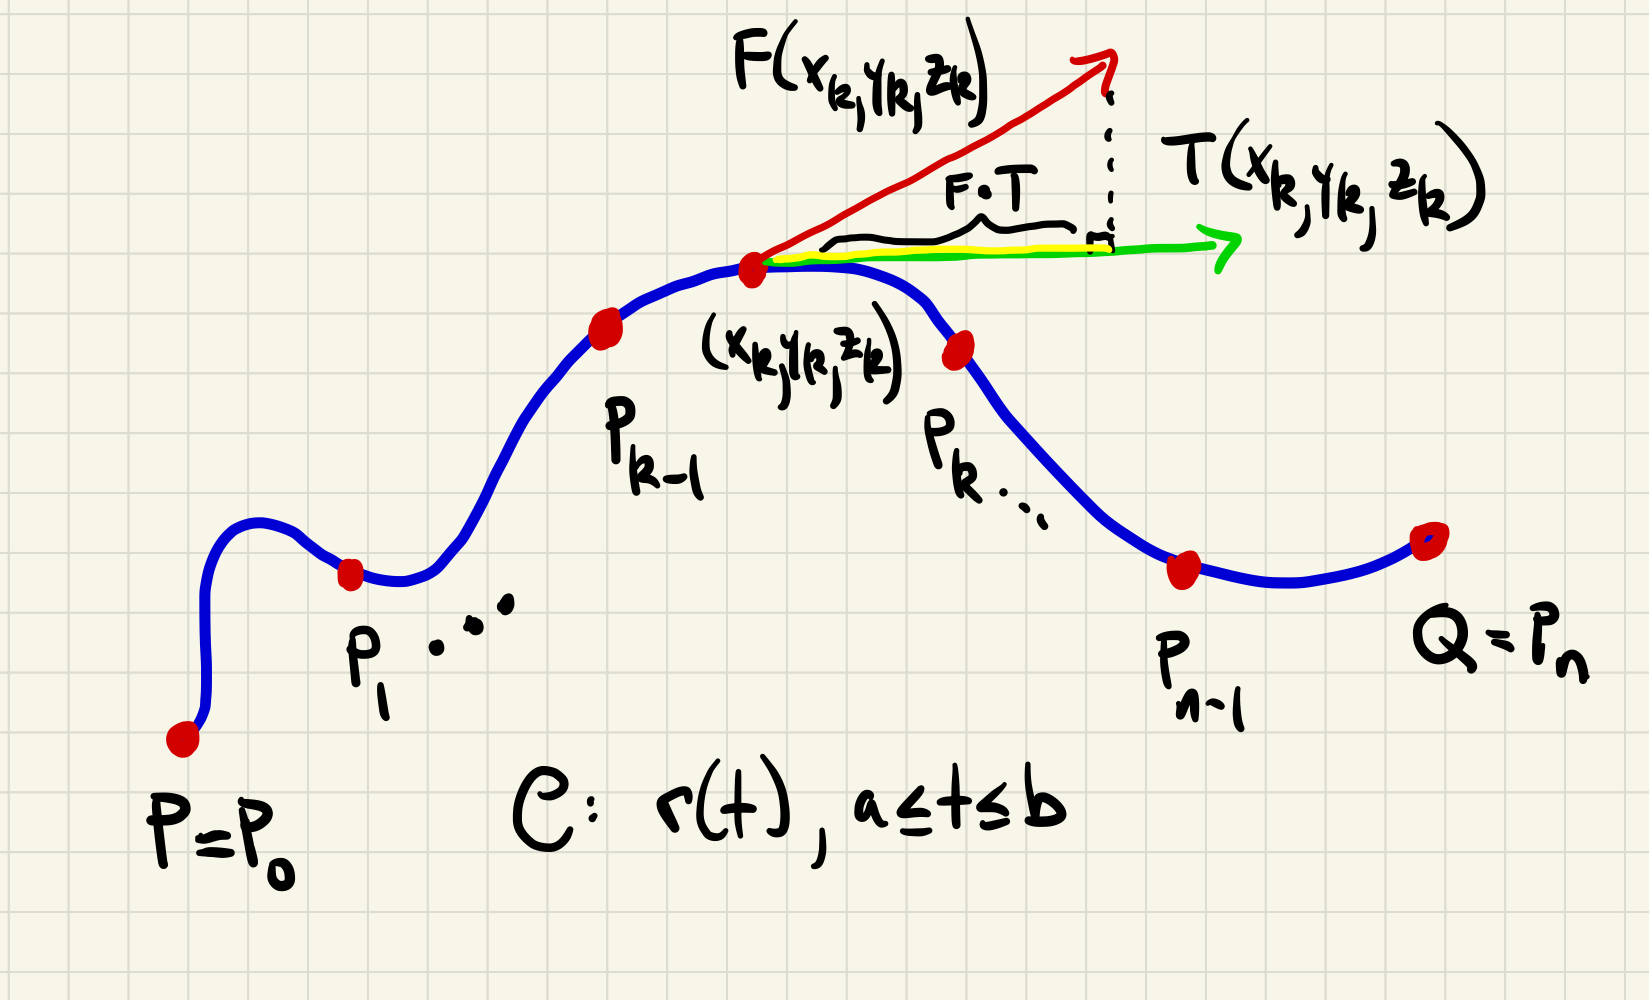 F(x_k, y_k, z_k)
T(x_k, y_k, z_k)
F·T
(x_k, y_k, z_k)
P_{k-1}
P_k ...
P_1 ...
P_{n-1}
Q = P_n
P = P_0
C: r(t), a ≤ t ≤ b